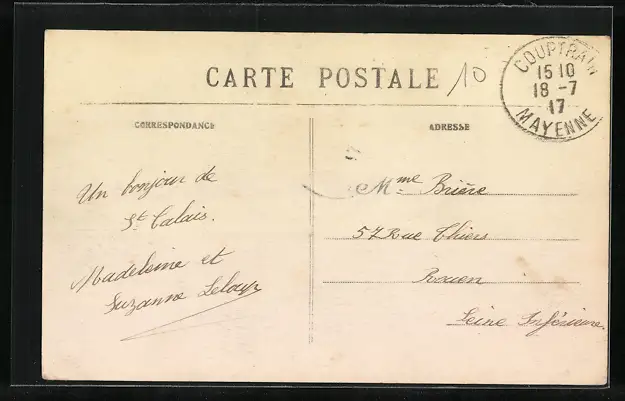 CARTE POSTALE
10
COUPTRAIN
15 10
18 -7
17
MAYENNE
CORRESPONDANCE
ADRESSE
Un bonjour de
St Calais.
Madeleine et
Suzanne
Mme Brière
57 Rue Thiers
Rouen
Seine Inférieure